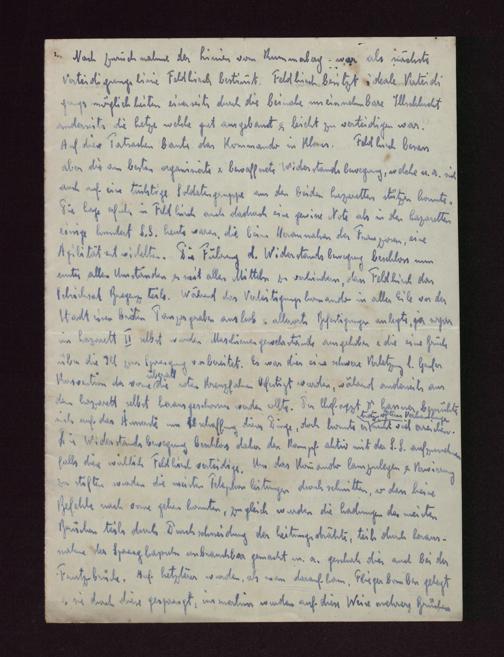 2. Nach Zurücknahme der Linien vom Kummaberg war als nächste
Verteidigungslinie Feldkirch bestimmt. Feldkirch besitzt ideale Verteidi
gungsmöglichkeiten einerseits durch die beinahe uneinnehmbare Illschlucht
anderseits die Letze welche gut ausgebaut & leicht zu verteidigen war.
Auf diese Tatsachen baute das Kommando in Feldkirch besass
aber die am besten organisierte & bewaffnete Widerstandsbewegung, welche u. a. sich
auch auf eine tüchtige Soldatengruppe aus den beiden Lazaretten stützen konnte.
Die Lage erhielt in Feldkirch auch dadurch eine gewisse Note als in den Lazaretten
einige hundert S.S. Leute waren, die beim Herannahen der Franzosen, eine
Agilität entwickelten. Die Führung d. Widerstandsbewegung beschloss nun
unter allen Umständen & mit allen Mitteln zu verhindern, dass Feldkirch das
Schicksal Bregenz teile. Während das Verteidigungskommando in aller Eile vor der
Stadt einen breiten Panzergraben aushob & allerorts Befestigungen anlegte,
im Lazarett II selbst wurden Maschinengewehrstände ausgehoben & die eine Brücke
über die Ill zur Sprengung vorbereitet. Es war dies eine schwere Verletzung d. Genfer
Konvention da vorne überall die roten Kreuzfahnen wurden, während anderseits aus
dem Lazarett selbst herausgeschossen werden sollte. Der Chefarzt Dr.
sich aufs Äusserste um Abschaffung dieser Dinge, doch konnte nicht erreichen.
Die Widerstandsbewegung beschloss daher den Kampf aktiv mit der S.S. aufzunehmen
falls diese wirklich Feldkirch verteidige. Um das Kommando lahmzulegen & Verwirrung
zu stiften wurden die meisten Telephonleitungen durchschnitten, so dass keine
Befehle nach vorne gehen konnten, zugleich wurden die Ladungen der meisten
Brücken teils durch Durchschneidung der Leitungsdrähte, teils durch Heraus-
nahme der Sprengkapseln unbrauchbar gemacht u. a. geschah dies auch bei der
brücke. Auf letzterer wurden, als man darauf kam, Fliegerbomben gelegt
& sie durch diese gesprengt, immerhin wurden auf diese Weise mehrere Brücken